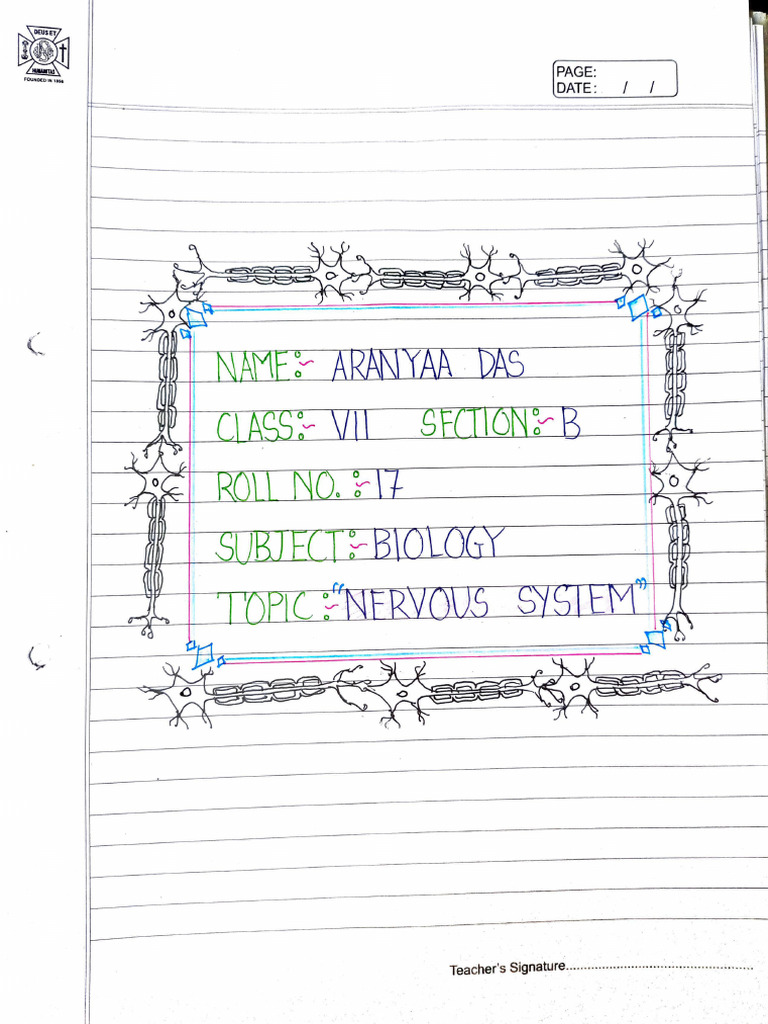 DEUS ET
HUMANITAS
PAGE:
DATE: / /
NAME:~ ARANYAA DAS
CLASS:~ VII SECTION:~ B
ROLL NO. :~ 17
SUBJECT:~ BIOLOGY
TOPIC :~ "NERVOUS SYSTEM"
Teacher's Signature......................................................